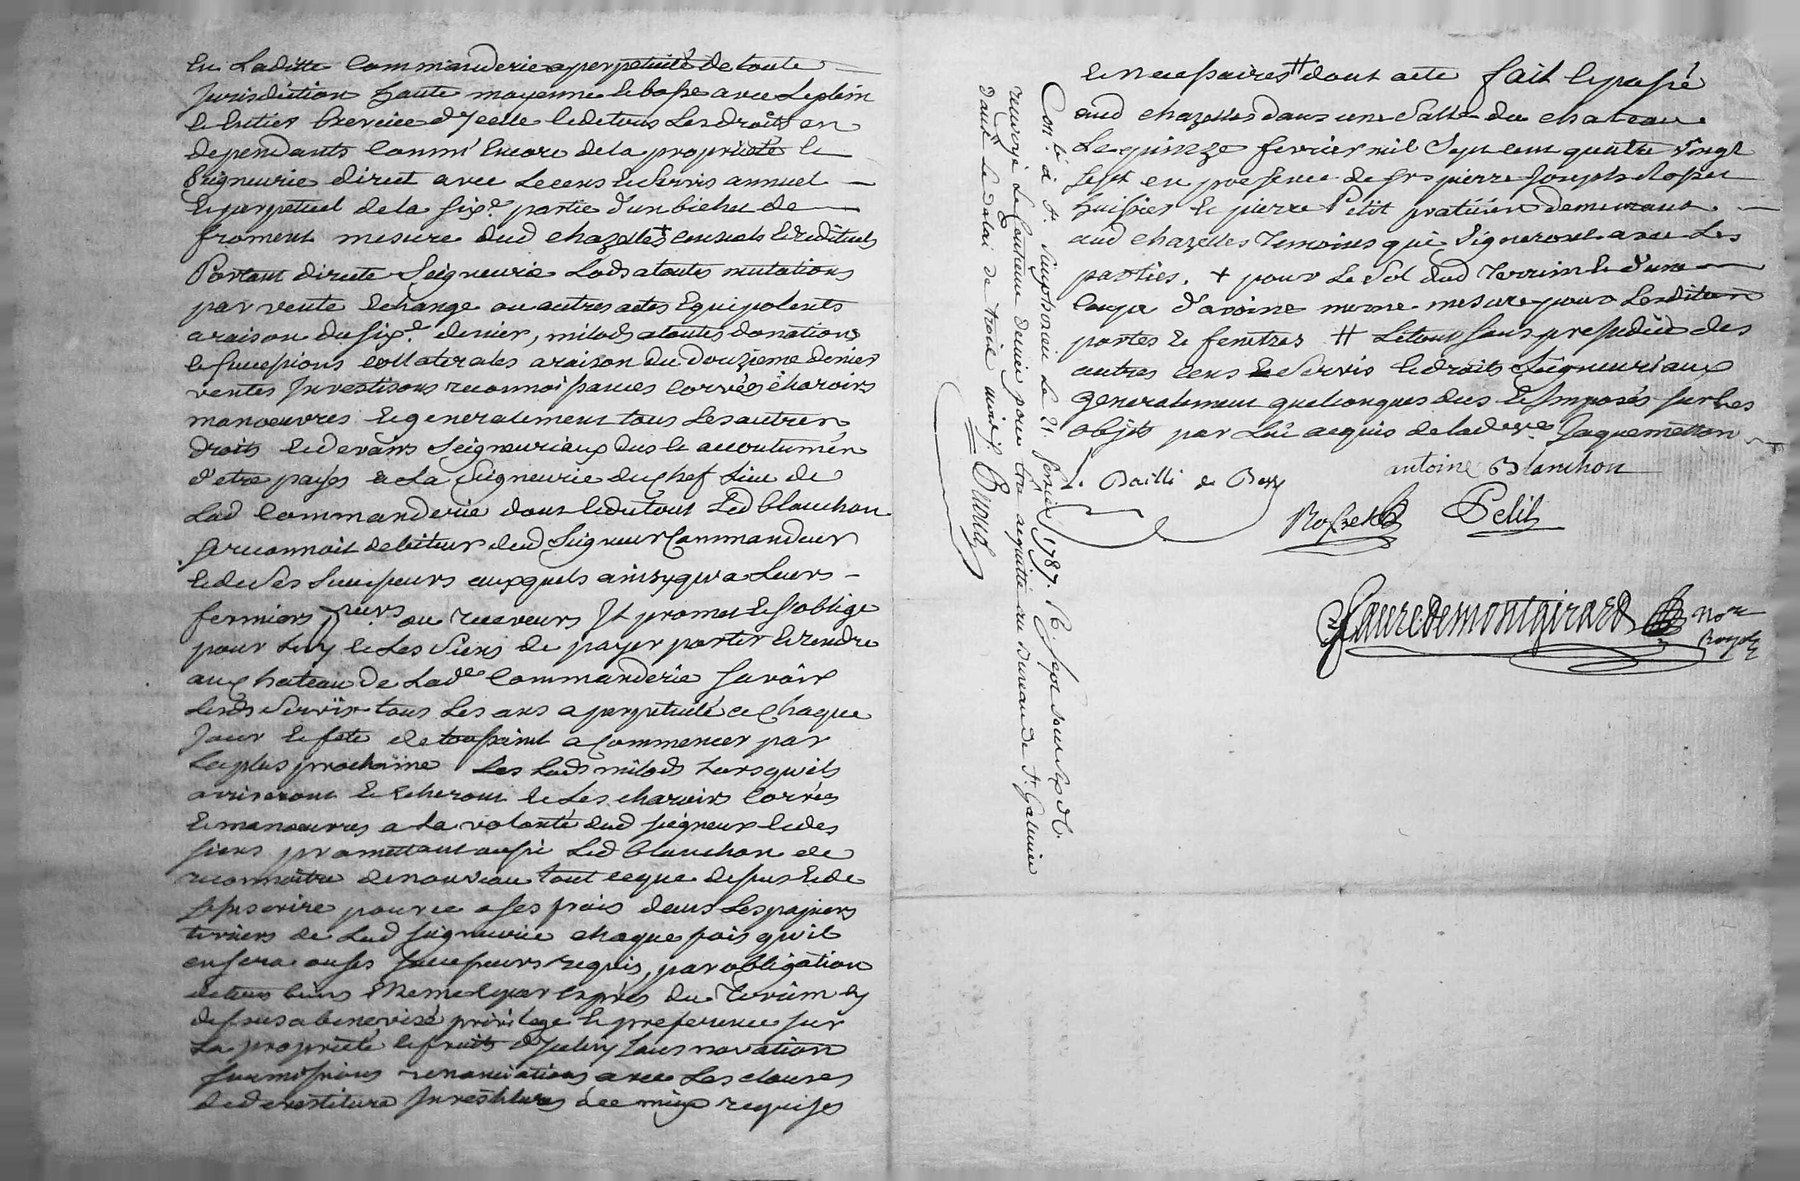 en Laditte Commanderie a perpetuité de toute
Jurisdiction haute moyenne & basse avec Le plein
& Entier Exercice d'Jcelle & de tous Les droits en
dependants Comm' Encore de la propriété &
Seigneurie direct avec Le cens & Servis annuel
& perpetuel de la six.e partie d'un bichet de
froment mesure dud chazelles + censuels & rédituels
Portant directe Seigneurie Lods a toutes mutations
par vente Echange ou autres actes Equipolents
a raison du six.e denier, milods a toutes donations
& successions collaterales a raison du douzieme denier
ventes Jnvestisons reconnoissances Corvées charois
manoeuvres & generalement tous Les autres
droits & devoirs Seigneuriaux dus & accoutumés
d'etre payés a La Seigneurie du chef Lieu de
Lad Commanderie dont & du tout Led blanchon
se reconnoit debiteur dud Seigneur Commandeur
& de Ses Successeurs auxquels ainsy qu'a Leurs
fermiers ou receveurs Jl promet & s'oblige
pour Luy & Les Siens de payer porter & rendre
au chateau de Lad.e Commanderie Savoir
Lesd Servis tous Les ans a perpetuité a chaque
Jour & fete de toussaint a Commencer par
La plus prochaine Les Lods milods Lorsqu'ils
arriveront & Echeront & Les charois Corvées
& manoeuvres a La volonté dud seigneur & des
siens promettant aussi Led blanchon de
reconnoitre de nouveau tout ce que dessus & de
s'inscrire pour ce a ses frais dans Les papiers
terriers de Lad seigneurie chaque fois qu'il
en sera ou ses successeurs requis, par obligation
de tous biens meme & par exprès du Terrein cy
dessus abenevisé privilege & preference sur
La propriété & fruits d'Jceluy sans novation
soumissions renonciations avec Les clauses
de devestiture Jnvestitures a ce mieux requises
& necessaires # dont acte fait & passé
aud chazelles dans une Salle du chateau
Le quinze fevrier mil Sept cent quatre vingt
sept en presence de sr pierre Joseph
huissier & pierre Petit praticien demeurant
aud chazelles Temoins qui Signeront avec Les
parties. + pour Le Sol dud Terrein & d'une
coupe d'avoine meme mesure pour Lesdites
portes & fenetres # Le tout sans prejudice des
autres cens & Servis & droits Seigneuriaux
generalement quelconques dus & Jmposés sur Les
objets par Lui acquis de lad Jaquemetton
Le Bailli de antoine Blanchon
Petit
Fauredemontgirard No.re
Royal
Con.lé a St. Simphorien Le 21. fevrier 1787. sous
renvoyé Le Centieme denier pour etre acquitté au Bureau de St. Galmier
dans Le Delai de trois mois